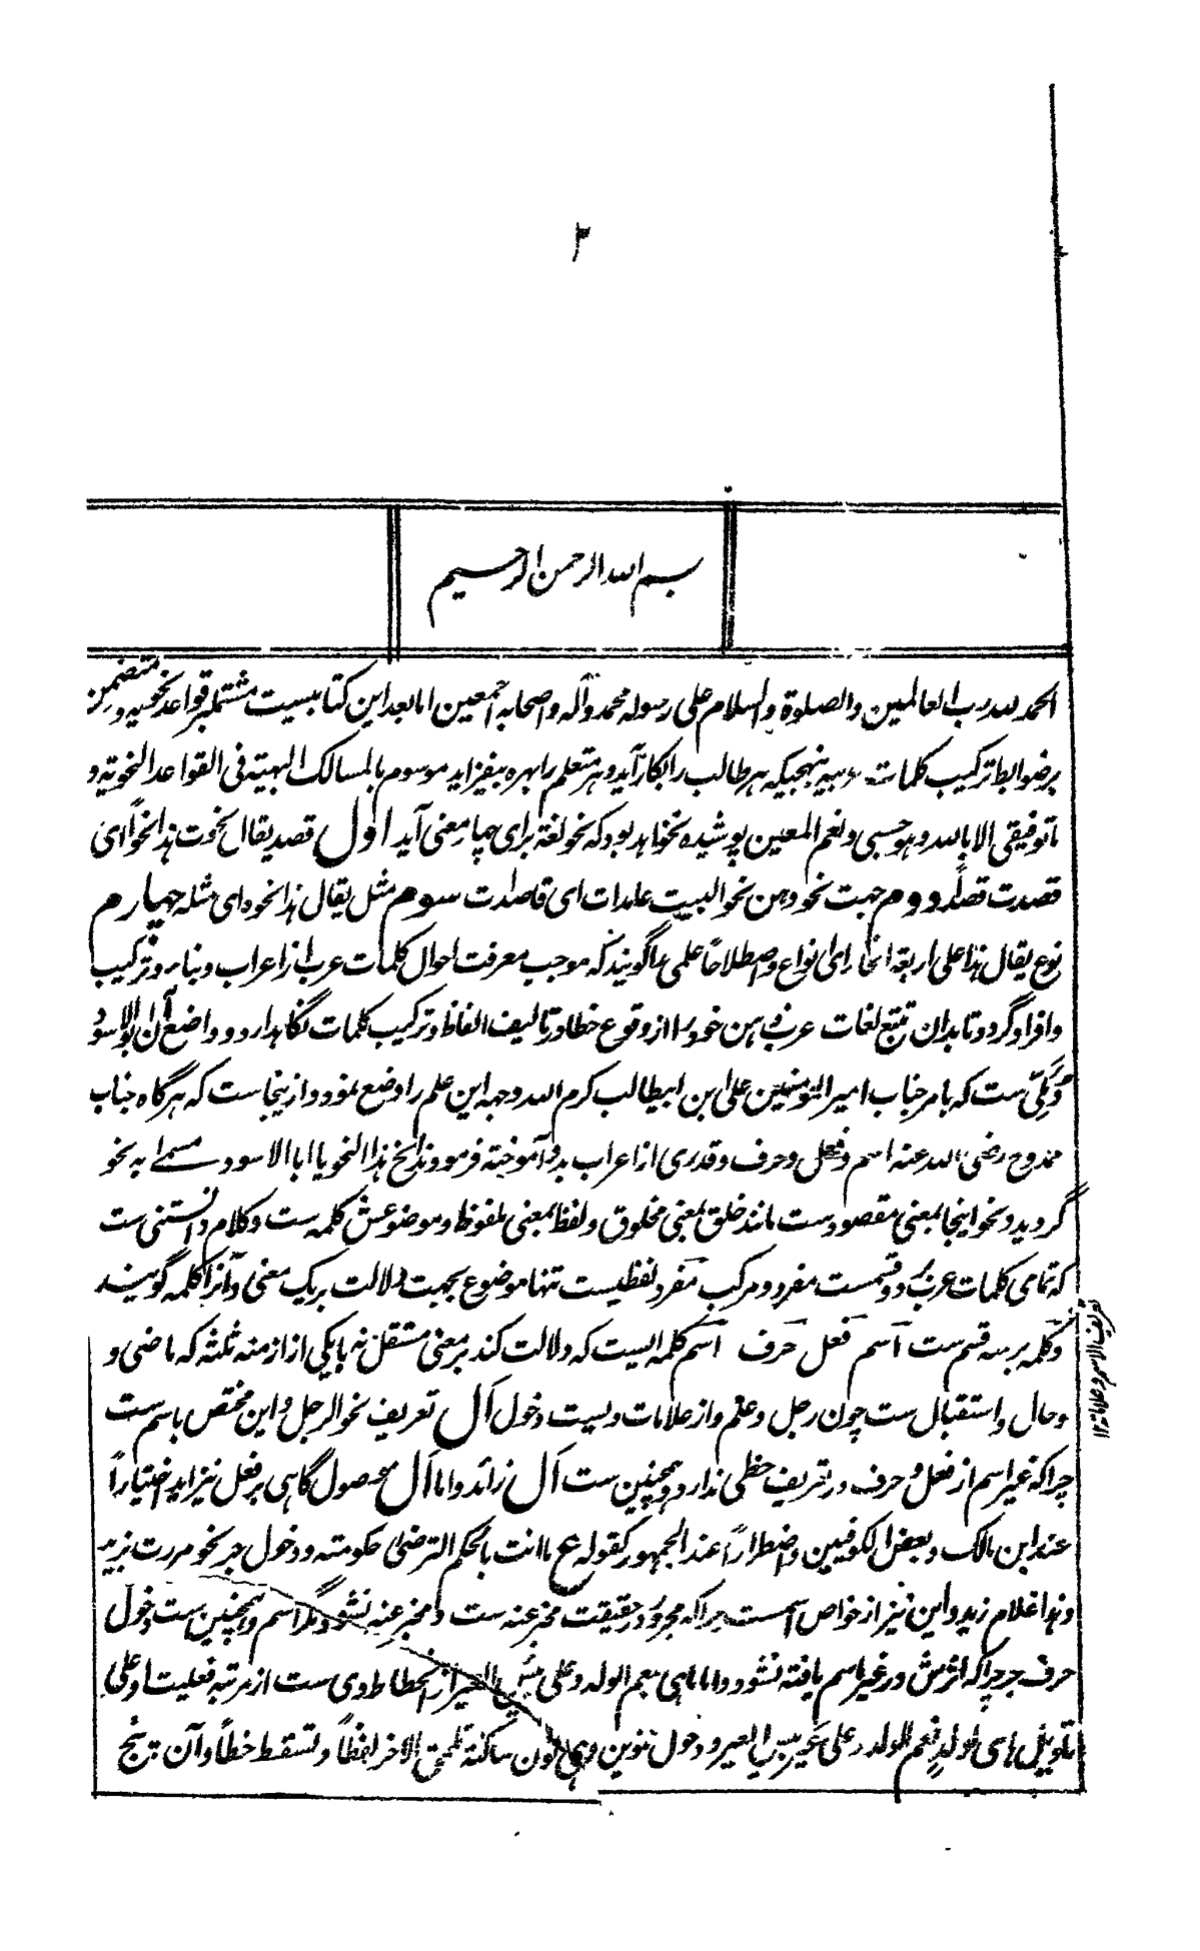 ۲
بسم الله الرحمن الرحیم
الحمد لله رب العالمین والصلوة والسلام علی رسوله محمد وآله واصحابه اجمعین اما بعد این کتابیست مشتمل بر قواعد نحویه و متضمن
بر ضوابط ترکیب کلمات عربیه بنهجیکه هر طالب را بکار آید و هر متعلم را بهره بیفزاید موسوم بالمسالک البهیته فی القواعد النحویته و
ما توفیقی الا بالله و هو حسبی و نعم المعین پوشیده نخواهد بود که نحو لغة برای چهار معنی آید اول قصد یقال نحوت هذا نحواً ای
قصدت قصداً دووم جهت نحو من نحو البیت عامدات ای قاصدات سوم مثل یقال هذا نحوه ای مثله چهارم
نوع یقال هذا علی اربعة انحاء ای انواع و اصطلاحاً علمی را گویند که موجب معرفت احوال کلمات عرب از اعراب و بناء و ترکیب
و افراد گردد تا بدان تتبع لغات عرب ذهن خود را از وقوع خطا در تالیف الفاظ و ترکیب کلمات نگاهدارد و واضع آن ابو الاسود
دئلی ست که بامر جناب امیر المومنین علی ابن ابیطالب کرم الله وجهه این علم را وضع نمود و ازینجاست که هرگاه جناب
ممدوح رضی الله عنه اسم و فعل و حرف و قدری از اعراب بدو آموخته فرمودند انح هذا النحو یا ابا الاسود مسمے به نحو
گردید و نحو اینجا بمعنی مقصودست مانند خلق بمعنی مخلوق و لفظ بمعنی ملفوظ و موضوعش کلمه ست و کلام دانستنی ست
که تمامی کلمات عرب بر دو قسمست مفرد و مرکب مفرد لفظیست تنها موضوع بجهت دلالت بر یک معنی و آنرا کلمه گویند
و کلمه بر سه قسم ست اسم فعل حرف اسم کلمه ایست که دلالت کند بر معنی مستقل نه با یکی از ازمنه ثلثه که ماضی و
و حال و استقبال ست چون رجل و علم و از علامات ویست دخول ال تعریف نحو الرجل و این مختص باسم ست
چرا که غیر اسم از فعل و حرف در تعریف حظی ندارد و همچنین ست ال زائد و اما ال موصول گاهی بر فعل نیز اید اختیاراً
عند ابن مالک و بعض الکوفیین و اضطراراً عند الجمهور کقوله ع ما انت بالحکم الترضی حکومته و دخول جر نحو مررت بزید
و هذا غلام زید و این نیز از خواص اسمست چرا که مجرور در حقیقت مخبر عنه ست و مخبر عنه نشود مگر اسم و همچنین ست دخول
حرف جر چرا که اثرش در غیر اسم یافته نشود و اما ماهی بنعم الولد و علی بئس العیر از انحطاط وی ست از مرتبه فعلیت او علی
بتاویل ماهی بولد نعم الولد و علی عیر بئس العیر و دخول تنوین وهی نون ساکنة تلحق الاخر لفظاً و تسقط خطاً و آن پنج